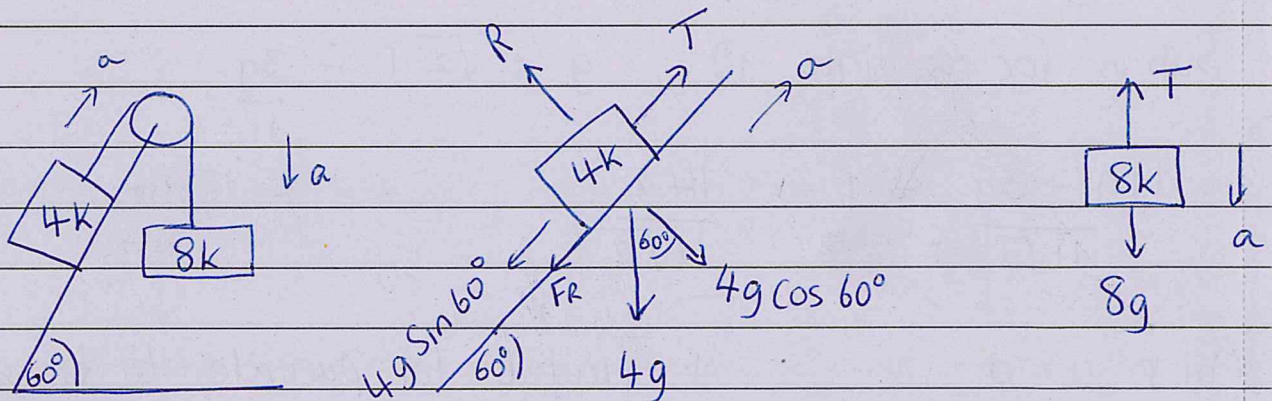 a
4k
8k
a
60°
R
T
a
4k
4g sin 60°
FR
60°
4g cos 60°
60°)
4g
T
8k
a
8g